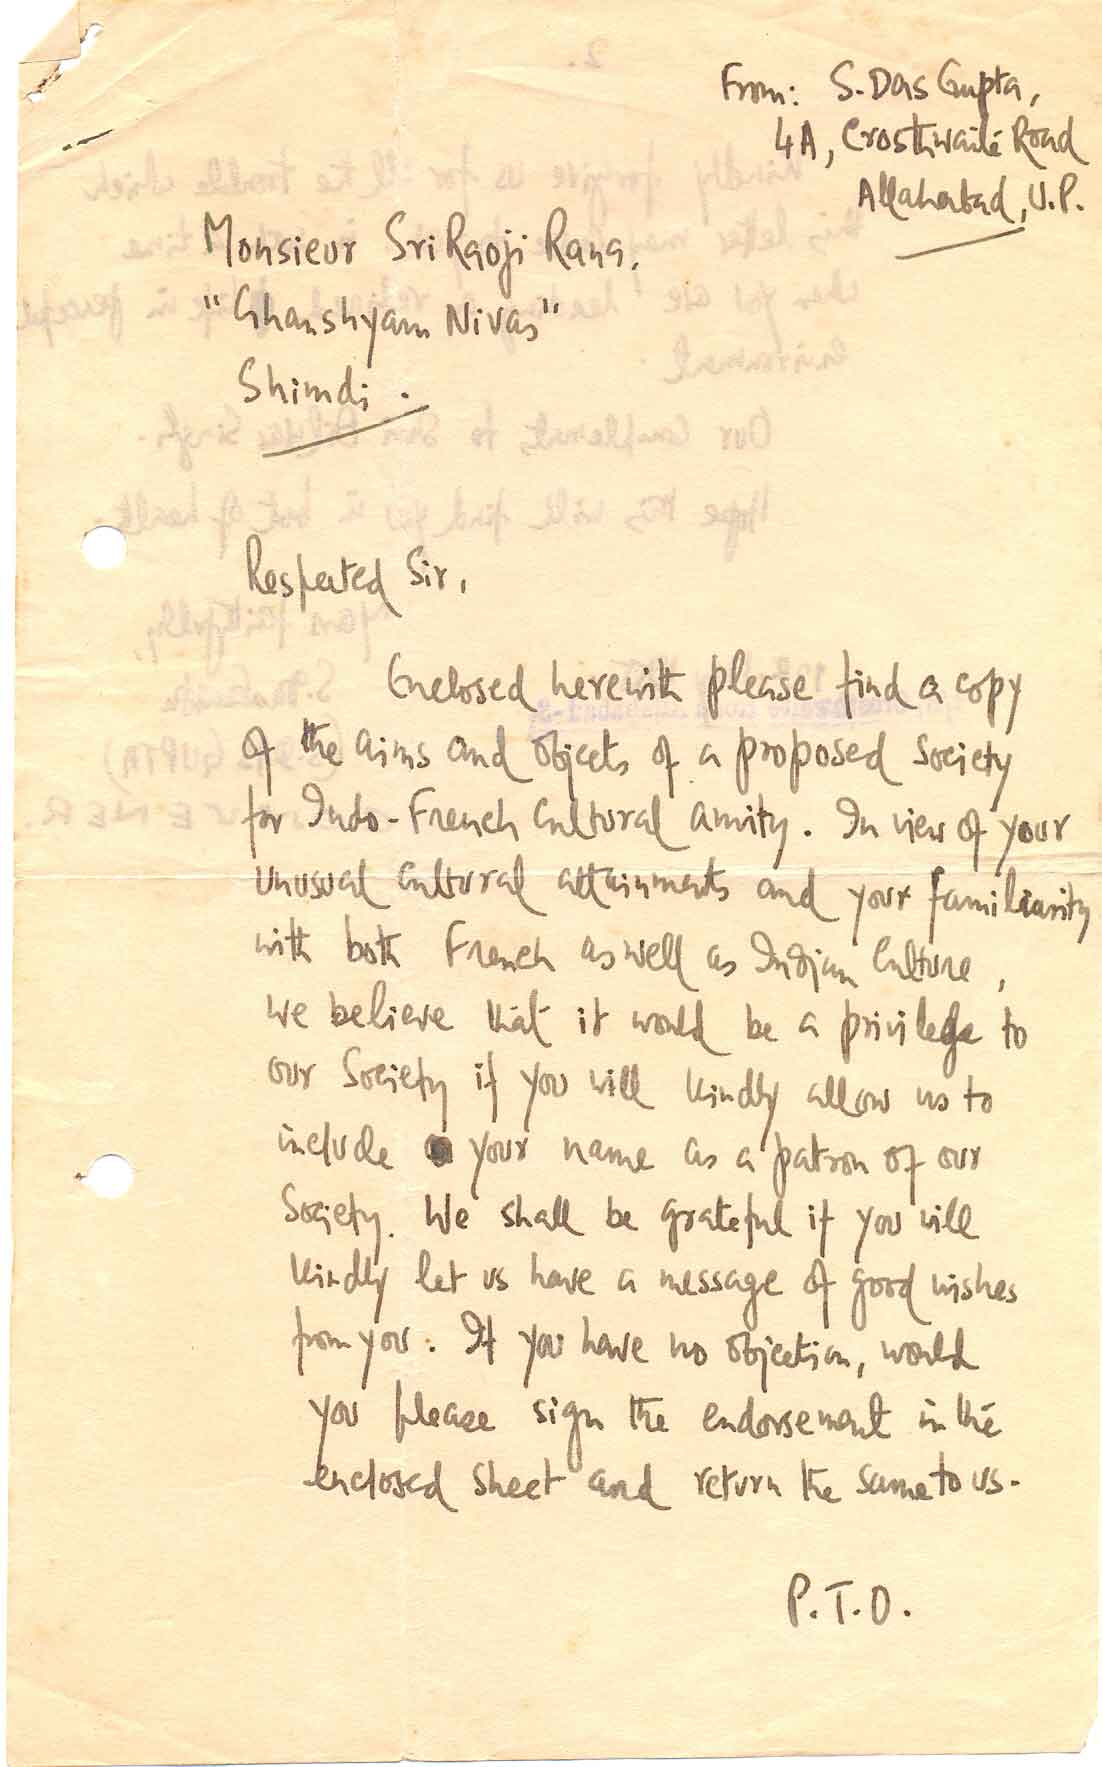 From: S. Das Gupta,
4A, Crosthwaite Road
Allahabad, U.P.
Monsieur Sri Raoji Rana,
"Ghanshyam Nivas"
Shimdi.
Respected Sir,
Enclosed herewith please find a copy
of the aims and objects of a proposed society
for Indo-French Cultural amity. In view of your
unusual cultural attainments and your familiarity
with both French as well as Indian Culture,
we believe that it would be a privilege to
our Society if you will kindly allow us to
include your name as a patron of our
Society. We shall be grateful if you will
kindly let us have a message of good wishes
from you. If you have no objection, would
you please sign the endorsement in the
enclosed sheet and return the same to us.
P.T.O.